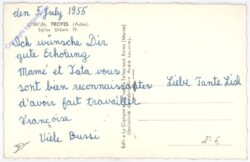 den 5 July 1955
TROYES (Aube).
Eglise Urbain IV.
Ich wünsche Dir
gute Erholung
Mamé et Tata vous
sont bien reconnaissantes
d'avoir fait travailler
Françoise
Viele Bussi
Liebe Tante Lisl